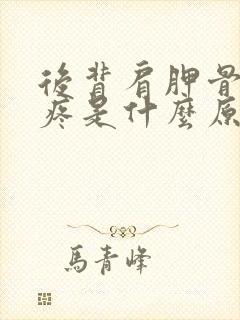 後背肩胛骨
疼是什麼原
馬青峰